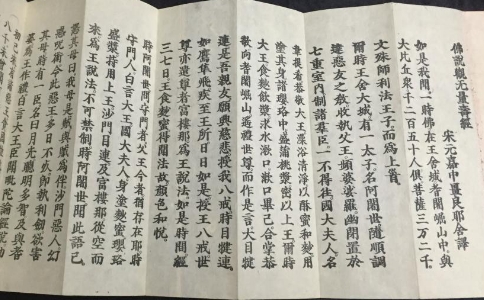 佛說觀無量壽經
宋元嘉中畺良耶舍譯
如是我聞一時佛在王舍城耆闍崛山中與
大比丘眾千二百五十人俱菩薩三萬二千
文殊師利法王子而為上首
爾時王舍大城有一太子名阿闍世隨順調
達惡友之教收執父王頻婆娑羅幽閉置於
七重室內制諸羣臣一不得往國大夫人名
韋提希恭敬大王澡浴清淨以酥蜜和麨用
塗其身諸瓔珞中盛蒲桃漿密以上王爾時
大王食麨飲漿求水漱口漱口畢已合掌恭
敬向耆闍崛山遙禮世尊而作是言大目犍
連是吾親友願興慈悲授我八戒時目犍連
如鷹隼飛疾至王所日日如是授王八戒世
尊亦遣尊者富樓那為王說法如是時間經
三七日王食麨蜜得聞法故顏色和悅
時阿闍世問守門者父王今者猶存在耶時
守門人白言大王國大夫人身塗麨蜜瓔珞
盛漿持用上王沙門目連及富樓那從空而
來為王說法不可禁制時阿闍世聞此語已
怒其母曰我母是賊與賊為伴沙門惡人幻
惑呪術令此惡王多日不死即執利劍欲害
其母時有一臣名曰月光聰明多智及與耆
婆為王作禮白言大王臣聞毗陀論經說劫
初已來有諸惡王
八千未